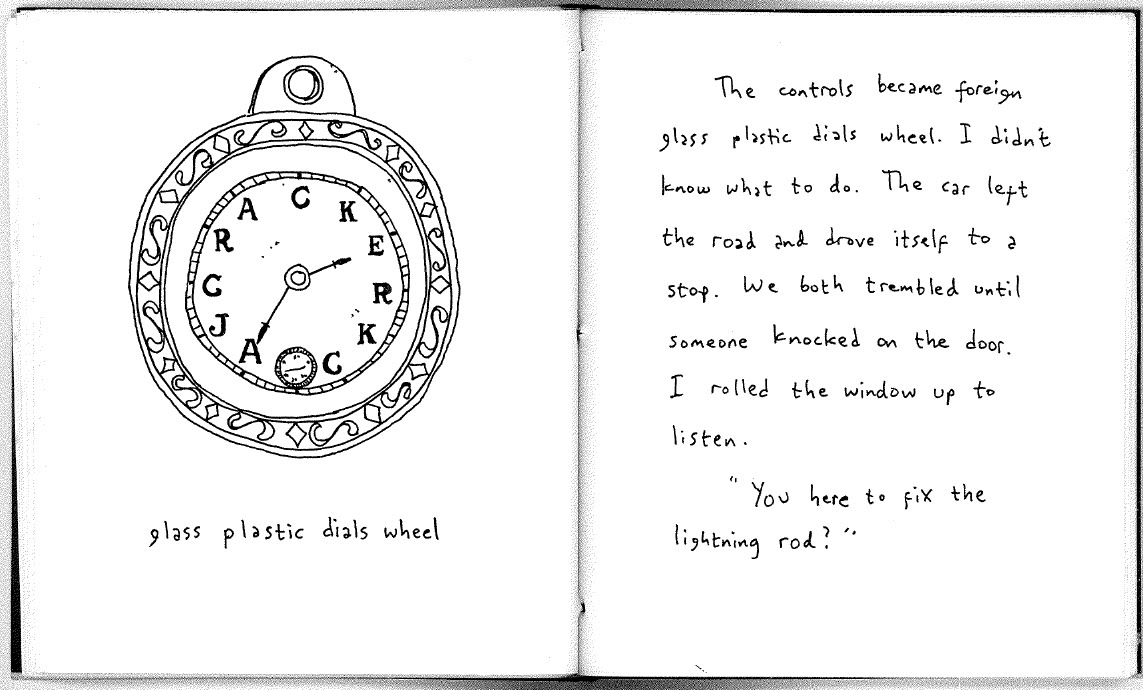 CRACKER
JACK
glass plastic dials wheel
The controls became foreign
glass plastic dials wheel. I didn't
know what to do. The car left
the road and drove itself to a
stop. We both trembled until
someone knocked on the door.
I rolled the window up to
listen.
"You here to fix the
lightning rod?"